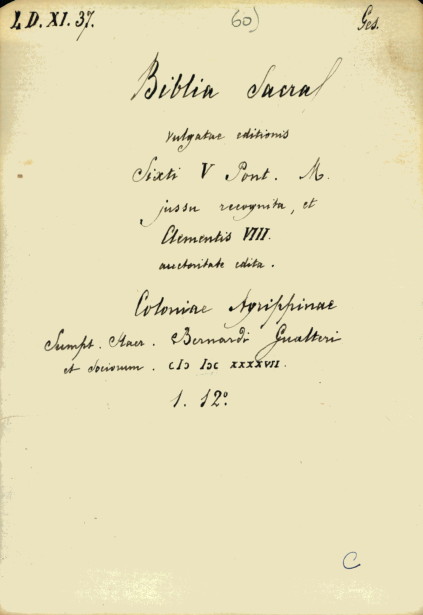 L D. XI. 37.
60)
Ges.
Biblia Sacra
vulgatae editionis
Sixti V Pont. M.
jussu recognita, et
Clementis VIII.
auctoritate edita.
Coloniae Agrippinae
Sumpt. Haer. Bernardi Gualteri
et sociorum. cIɔ Iɔc xxxxvii.
1. 12°
C